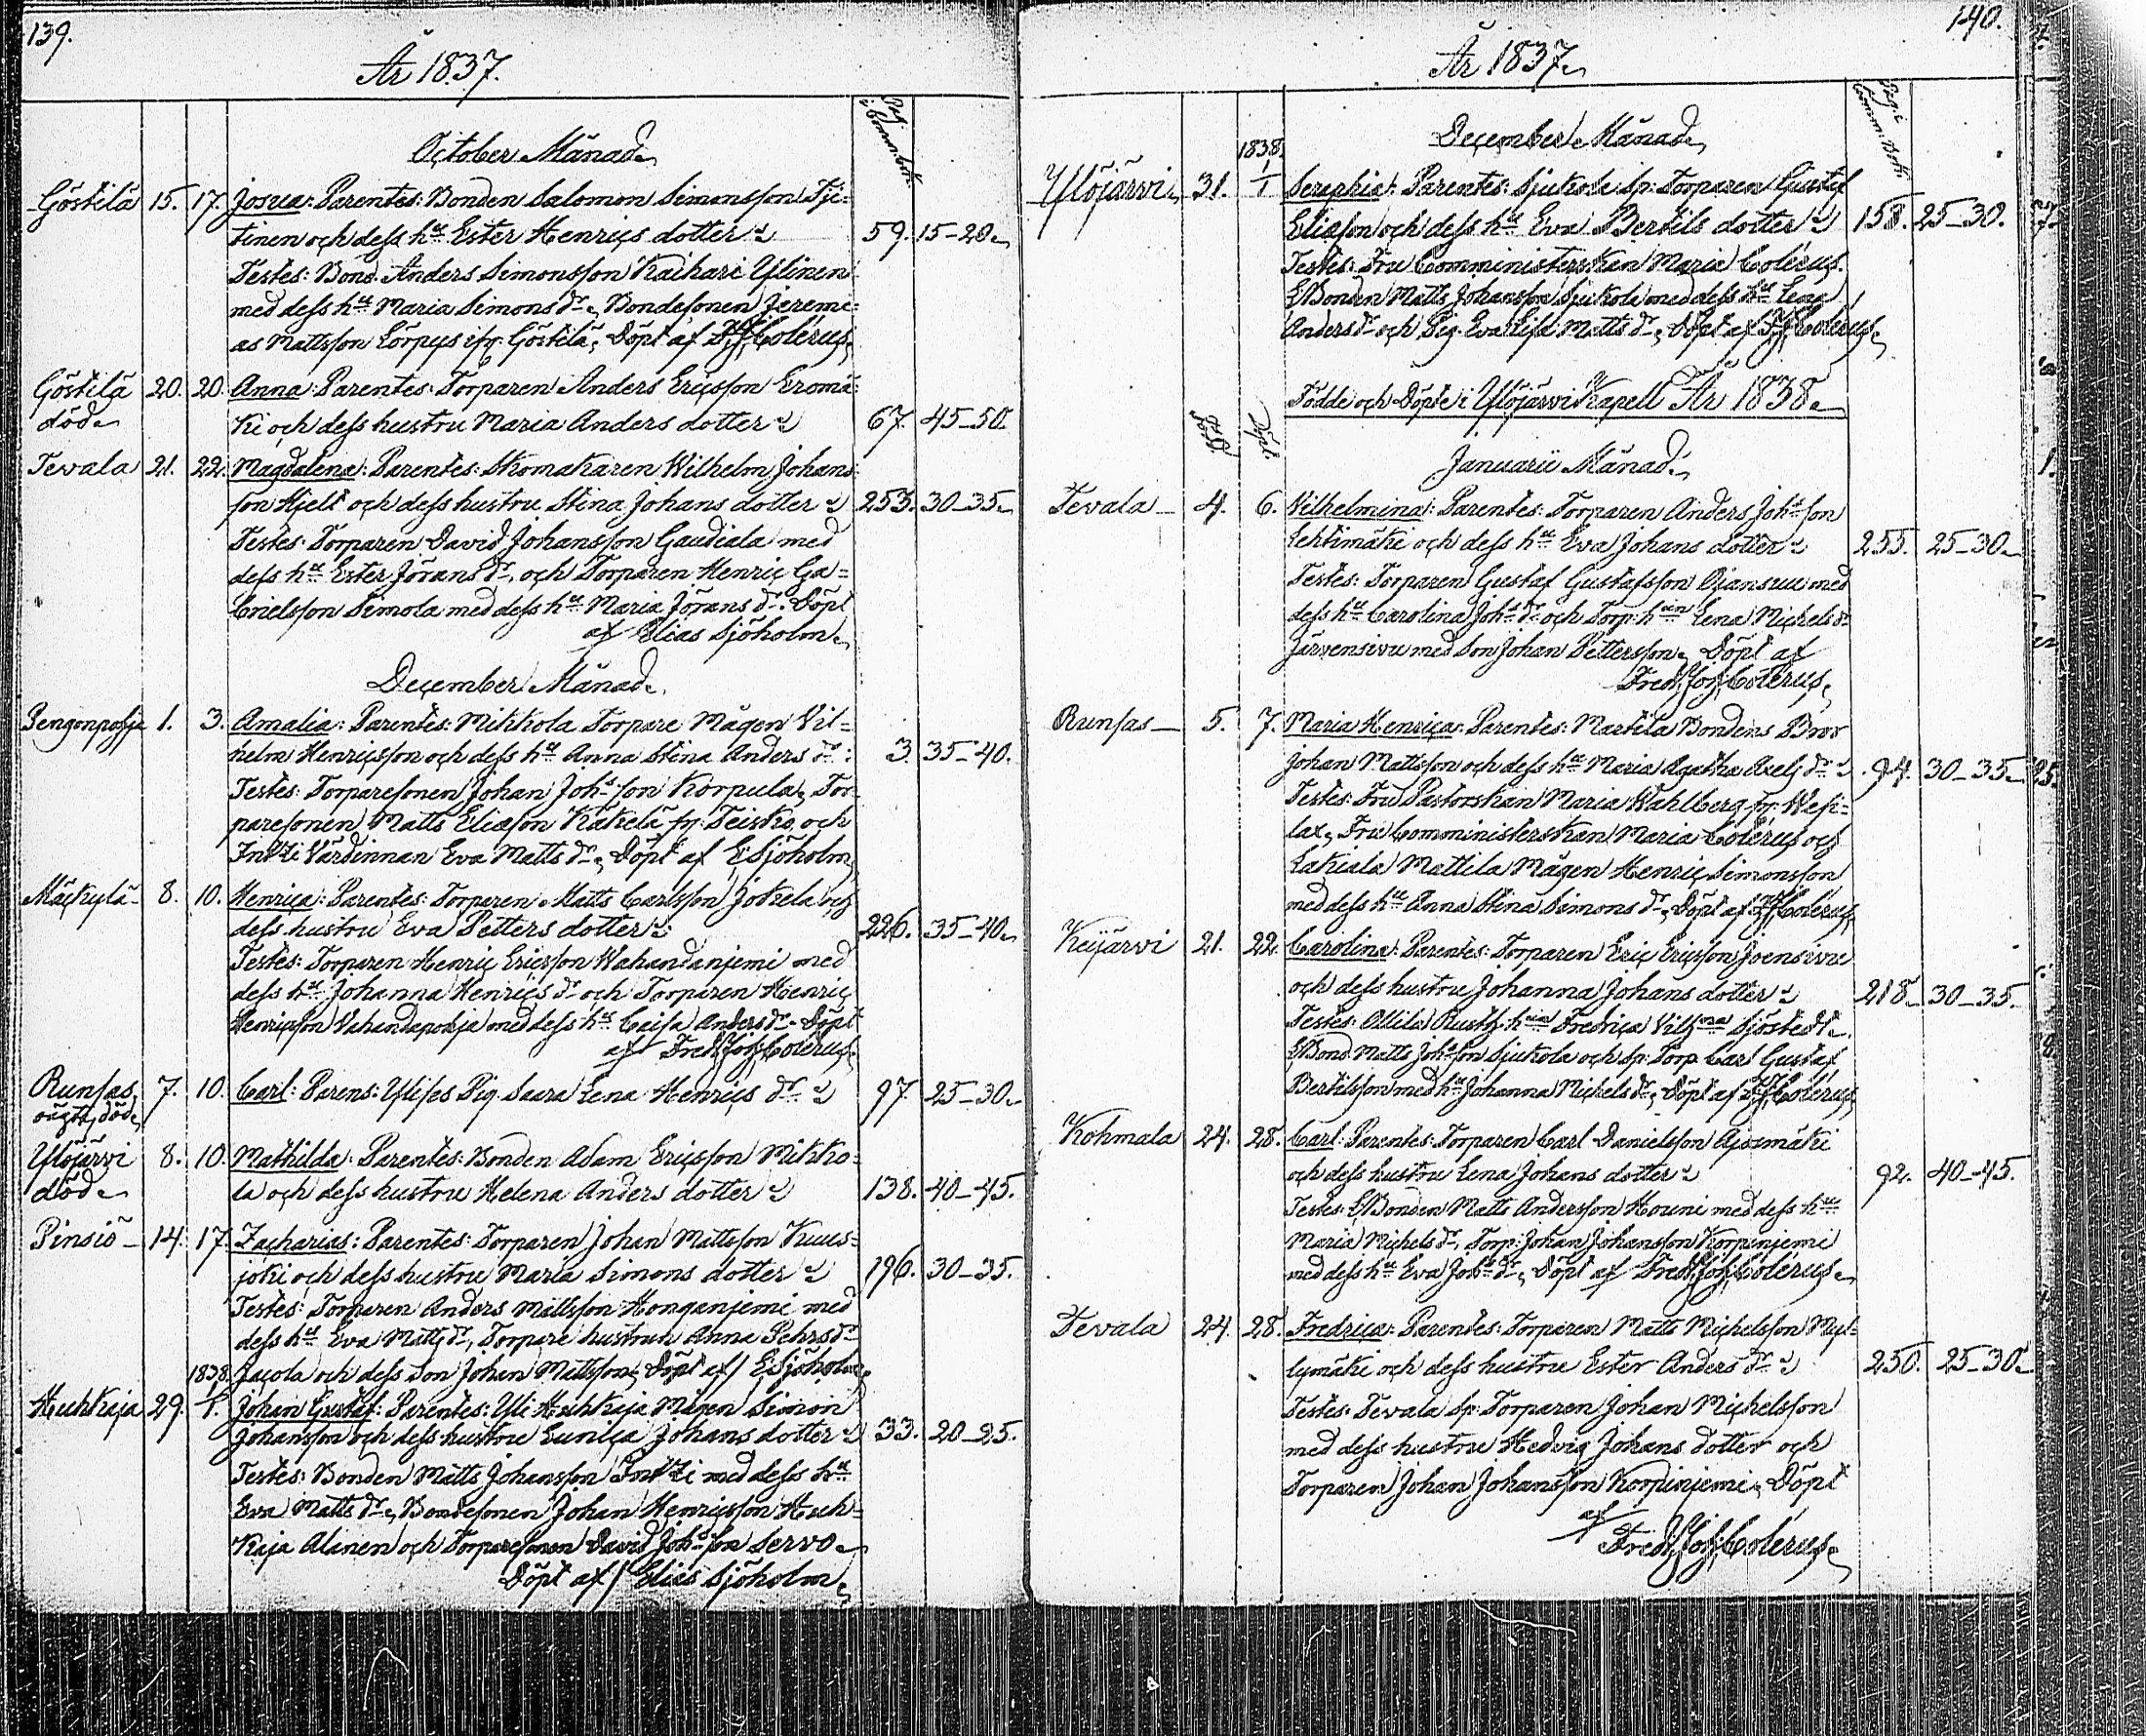 139.
År 1837.
Pag. i Comm. bok.
October Månad.
Göstilä 15. 17. Josua: Parentes: Bonden Salomon Simonsson Tji=
tinen och dess hu Ester Henrics dotter 59. 15-20.
Testes: Bond. Anders Simonsson Kaihari Ylinen
med dess hu Maria Simons dr, Bondesonen Jeremi=
as Mattsson Lörpys ifr. Göstilä, Döpt af F.J. Colérus.
Göstilä 20. 20. Anna: Parentes: Torparen Anders Ericsson Eromä=
död. ki och dess hustru Maria Anders dotter 67. 45-50.
Tevala 21. 22. Magdalena: Parentes: Skomakaren Wilhelm Johans=
son Hjelt och dess hustru Stina Johans dotter 253. 30-35.
Testes: Torparen David Johansson Gaudiala med
dess hu Ester Jörans dr, och Torparen Henric Ga=
brielsson Simola med dess hu Maria Jörans dr. Döpt
af Elias Sjöholm.
December Månad.
Pengonpohja 1. 3. Amalia: Parentes: Mikkola Torpare Mågen Vil=
helm Henricsson och dess hu Anna Stina Anders dr: 3. 35-40.
Testes: Torparesonen Johan Johs son Korpula, Tor=
paresonen Matts Eliason Käkelä fr. Teisko, och
Inttti Värdinnan Eva Matts dr, Döpt af E. Sjöholm.
Mäckylä 8. 10. Henrica: Parentes: Torparen Matts Carlsson Jokela och
dess hustru Eva Petters dotter 226. 35-40.
Testes: Torparen Henric Ericsson Wahandanjemi med
dess hu Johanna Henrics dr och Torparen Henric
Henricsson Vahandapohja med dess hu Caisa Anders dr. Döpt
af Fred. Joh. Colérus.
Runsas 7. 10. Carl: Parens: Ylises Pig. Saara Lena Henrics dr 97. 25-30.
oägta, död.
Ylöjärvi 8. 10. Mathilda: Parentes: Bonden Adam Ericsson Mikko=
död. la och dess hustru Helena Anders dotter 138. 40-45.
Pinsiö 14. 17. Zacharias: Parentes: Torparen Johan Mattsson Kuus=
joki och dess hustru Maria Simons dotter 196. 30-35.
Testes: Torparen Anders Mattsson Honganjemi med
dess hu Eva Matts dr, Torpare hustrun Anna Pehrs dr
1838. Jacola och dess Son Johan Mattsson, Döpt af E. Sjöholm.
Huhkaja 29. 1. Johan Gustaf: Parentes: Yli Huhkaja Mågen Simon
Johansson och dess hustru Eunica Johans dotter 33. 20-25.
Testes: Bonden Matts Johansson Intti med dess hu
Eva Matts dr, Bondesonen Johan Henricsson Huh=
kaja Alanen och Torparesonen David Johs son Servo.
Döpt af Elias Sjöholm.
140.
År 1837.
Pag. i Comm. bok
December Månad.
1838.
Ylöjärvi 31. 1/1 Seraphia: Parentes: Sjukola Sp: Torparen Gustaf
Eliason och dess hu Eva Bertils dotter 158. 25-30.
Testes: Fru Comministerskan Maria Colérus.
E Bonden Matts Johansson Sjukola med dess hu Lena
Anders dr och Pig. Eva Lisa Matts dr, Döpt af F.J. Colérus.
Födde och Döpte i Ylöjärvi Kapell År 1838.
Född Döpt
Januarii Månad.
Tevala 4. 6. Vilhelmina: Parentes: Torparen Anders Johs son
Lehtimäke och dess hu Eva Johans dotter 255. 25-30.
Testes: Torparen Gustaf Gustafsson Ojansuu med
dess hu Carolina Johs dr och Torp. hun Lena Michels dr
Järvensivu med Son Johan Pettersson. Döpt af
Fred. Joh. Colérus.
Runsas 5. 7. Maria Henrica: Parentes: Mattila Bondens Bror
Johan Mattsson och dess hu Maria Agatha Axels dr 94. 30-35.
Testes: Fru Pastorskan Maria Wahlberg fr. Wesi=
lax, Fru Comministerskan Maria Colérus och
Lakiala Mattila Mågen Henric Simonsson
med dess hu Anna Stina Simons dr, Döpt af F.J. Colérus.
Keijärvi 21. 22. Carolina: Parentes: Torparen Eric Ericsson Joensivu
och dess hustru Johanna Johans dotter 218. 30-35.
Testes: Ollila Rusth. hun Fredrica Vilhma Sjöstedt.
E Bond. Matts Johs son Sjukola och Sp: Torp. Carl Gustaf
Bertilsson med hu Johanna Michels dr, Döpt af F.J. Colérus.
Kohmala 24. 28. Carl: Parentes: Torparen Carl Danielsson Ajosmäki
och dess hustru Lena Johans dotter 92. 40-45.
Testes: E Bonden Matts Andersson Houni med dess hu
Maria Michels dr, Torp: Johan Johansson Korpinjemi
med dess hu Eva Johs dr, Döpt af Fred. Joh. Colérus.
Tevala 24. 28. Fredrica: Parentes: Torparen Matts Michelsson Myl=
lymäki och dess hustru Ester Anders dr 250. 25-30.
Testes: Tevala Sp: Torparen Johan Michelsson
med dess hustru Hedvig Johans dotter och
Torparen Johan Johansson Korpinjemi. Döpt
af
Fred. Joh. Colérus.